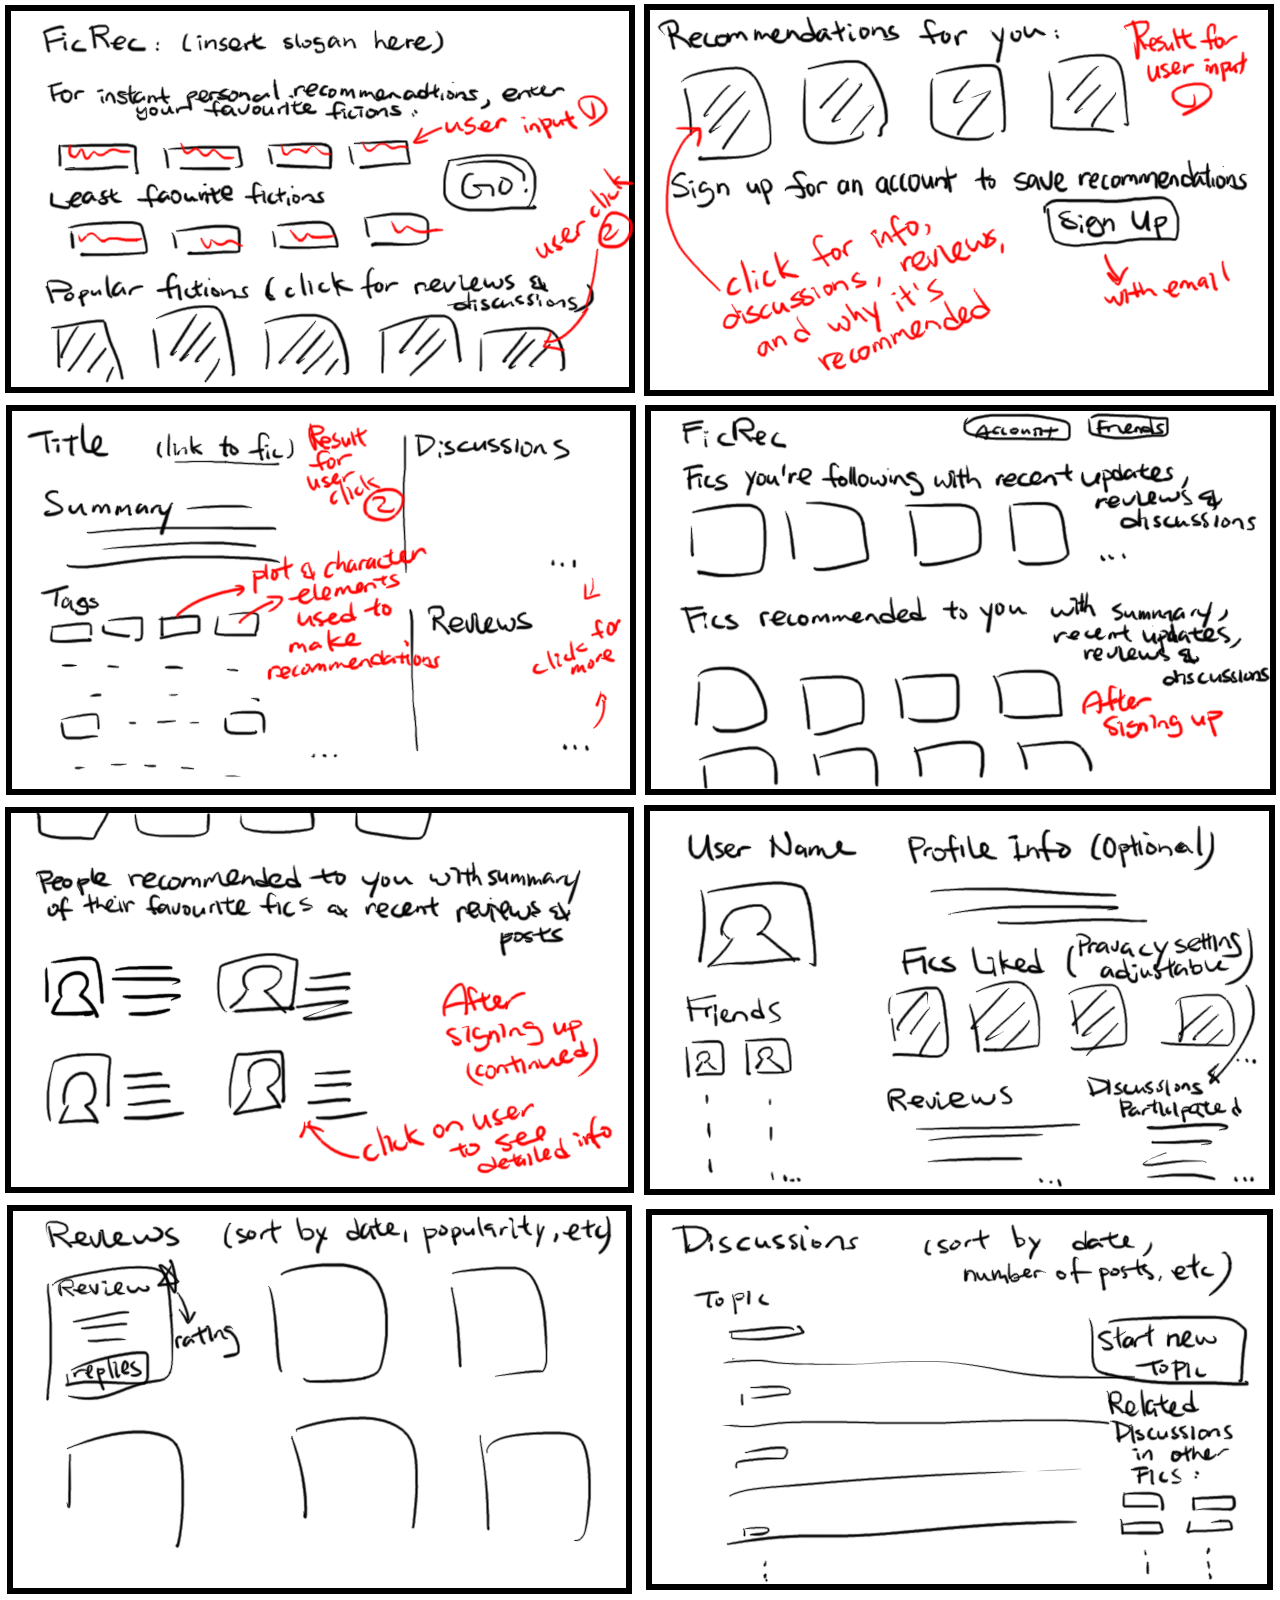 FicRec: (insert slogan here)
For instant personal recommenadtions, enter
your favourite fictions:
user input 1
Least faourite fictions
GO!
user click
2
Popular fictions (click for reviews &
discussions)
Recommendations for you:
Result for
user input
1
Sign up for an account to save recommendations
Sign Up
with email
click for info,
discussions, reviews,
and why it's
recommended
Title (link to fic)
Result
for
user
click
2
Summary
Tags
plot & character
elements
used to
make
recommendations
Discussions
...
click for
more
Reviews
...
...
FicRec
Account
Friends
Fics you're following with recent updates,
reviews &
discussions
...
Fics recommended to you with summary,
recent updates,
reviews &
discussions
After
signing up
People recommended to you with summary
of their favourite fics & recent reviews &
posts
After
signing up
(continued)
click on user
to see
detailed info
User Name
Profile Info (Optional)
Fics Liked (Pravacy setting
adjustable)
Friends
...
Reviews
Discussions
Participated
...
...
...
Reviews (sort by date, popularity, etc)
Review
rating
replies
Discussions (sort by date,
number of posts, etc)
Topic
Start new
Topic
Related
Discussions
in other
Fics: